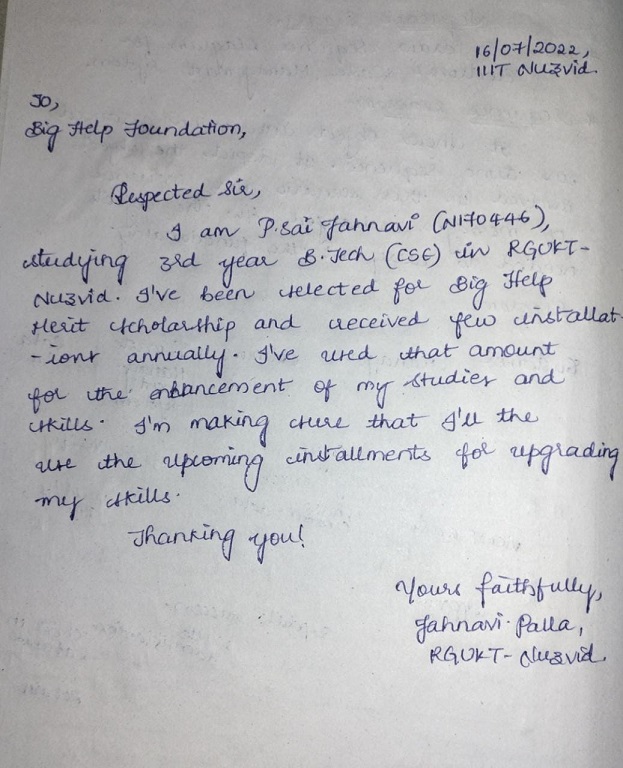 16/07/2022,
IIIT Nuzvid.
To,
Big Help Foundation,
Respected Sir,
I am P.Sai Jahnavi (N170446),
studying 3rd year B.Tech (CSE) in RGUKT-
Nuzvid. I've been selected for Big Help
Merit Scholarship and received few installat-
-ions annually. I've used that amount
for the enhancement of my studies and
skills. I'm making sure that I'll the
use the upcoming installments for upgrading
my skills.
Thanking you!
Yours faithfully,
Jahnavi. Palla,
RGUKT- Nuzvid.